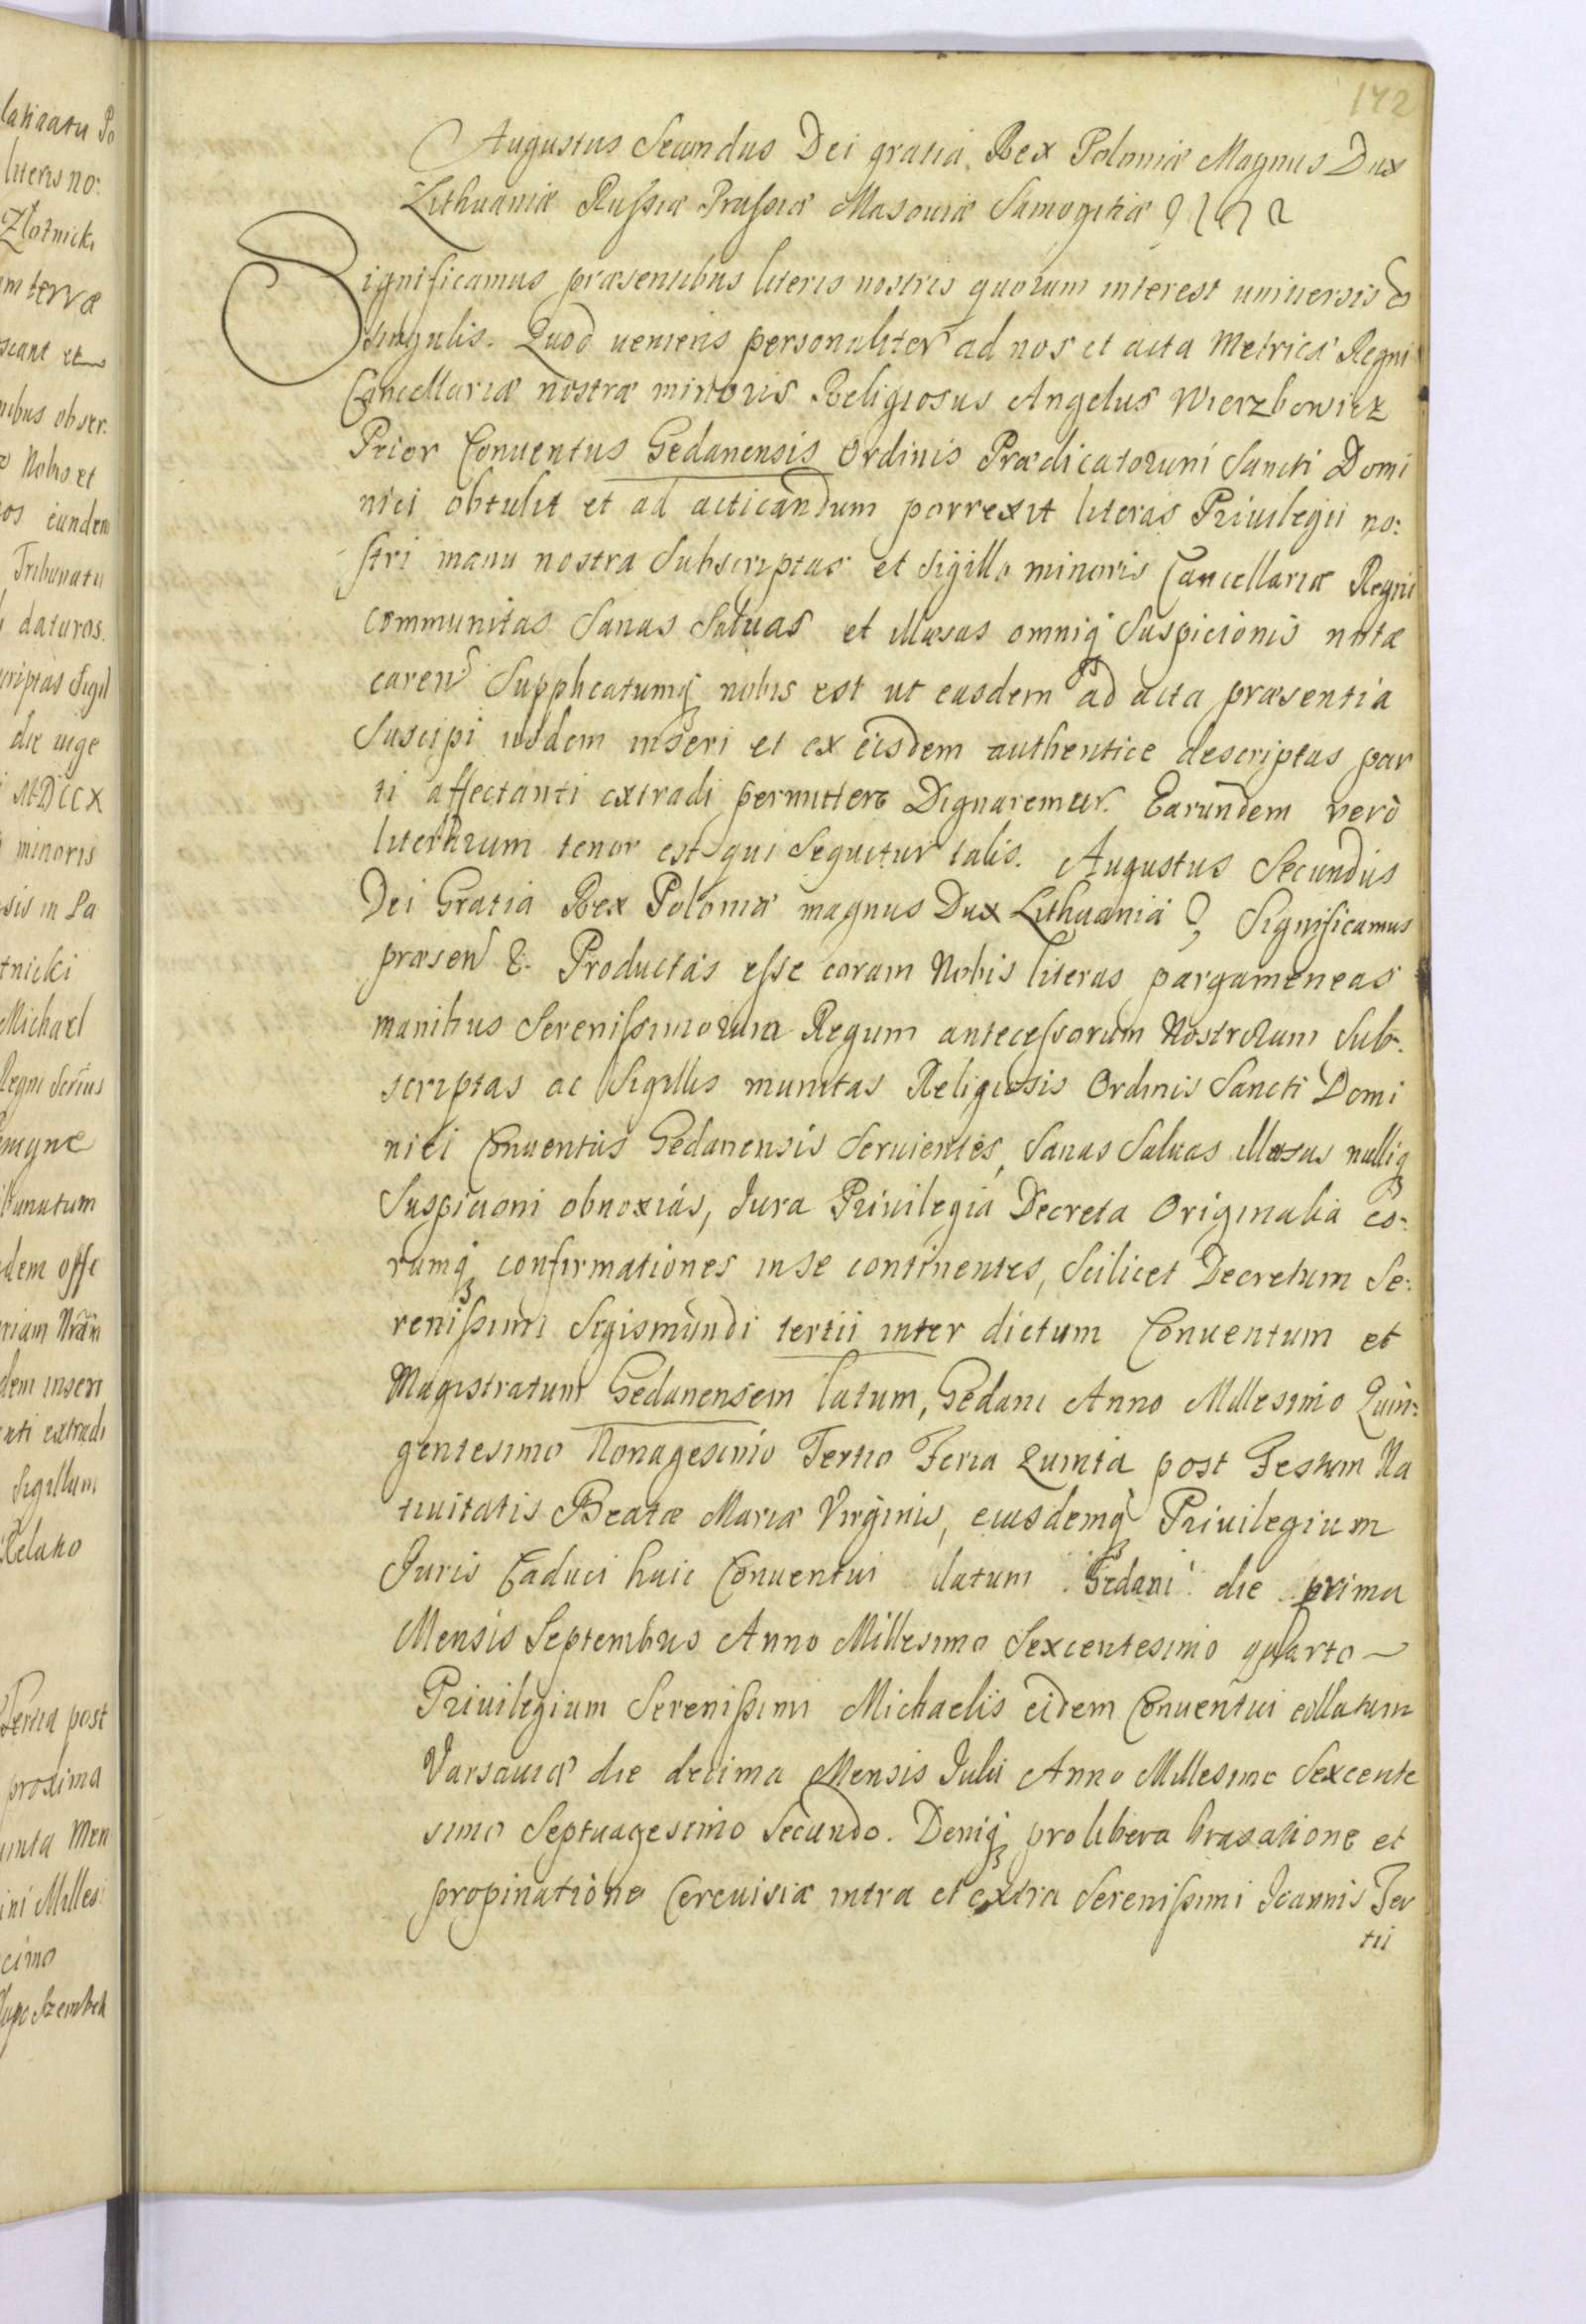 latinatu Po
literis no:
Złotnicki
um terræ
scant et
nibus obser:
Nobis et
eos eundem
Tribunatu
daturos.
criptas Sigil
die vige
MDCCX
minoris
sis in La
tnicki
Michael
Regni
magne
bunatum
dem offe
riam Nrãm
dem inseri
nti extradi
Sigillum
Relatio
Feria post
proxima
unta Men
ini Milles:
cimo
Szembek
172
Augustus Secundus Dei gratia Rex Poloniæ Magnus Dux
Lithuaniæ Russiæ Prussiæ Masouiæ Samogitiæ
Significamus præsentibus literis nostris quorum interest uniuersis &
singulis. Quod ueniens personaliter ad nos et acta Metricæ Regni
Cancellariæ nostræ minoris Religiosus Angelus Wierzbowicz
Prior Conuentus Gedanensis Ordinis Prædicatorum Sancti Domi
nici obtulit et ad acticandum porrexit literas Priuilegii no:
stri manu nostra Subscriptas et Sigillo minoris Cancellariæ Regni
communitas Sanas Saluas et illæsas omniq Suspicionis nota
caren Supplicatumq nobis est ut easdem ad acta præsentia
Suscipi iisdem inseri et ex eisdem authentice descriptas par
ti affectanti extradi permittere Dignaremur. Earundem verò
literarum tenor est qui Sequitur talis. Augustus Secundus
Dei Gratia Rex Poloniæ magnus Dux Lithuaniæ Significamus
præsen &. Productas esse coram Nobis literas pargameneas
manibus Serenissimorum Regum antecessorum Nostrorum Sub:
scriptas ac Sigillis munitas Religiosis Ordinis Sancti Domi
nici Conuentus Gedanensis Seruientes, Sanas Saluas illæsas nulliq
Suspicioni obnoxias, Jura Priuilegia Decreta Originalia eo:
rumq confirmationes in se continentes, Scilicet Decretum Se:
renissimi Sigismundi tertii inter dictum Conuentum et
Magistratum Gedanensem latum, Gedani Anno Millesimo Quin:
gentesimo Nonagesimo Tertio Feria Quinta post Festum Na
tiuitatis Beatæ Mariæ Virginis, eiusdemq Priuilegium
Juris Caduci huic Conuentui datum Gedani die prima
Mensis Septembris Anno Millesimo Sexcentesimo quarto
Priuilegium Serenissimi Michaelis eidem Conuentui collatum
Varsauiæ die decima Mensis Julii Anno Millesimo Sexcente
simo Septuagesimo Secundo. Deniq pro libera braxatione et
propinatione Cereuisiæ intra et extra Serenissimi Joannis Ter
tii